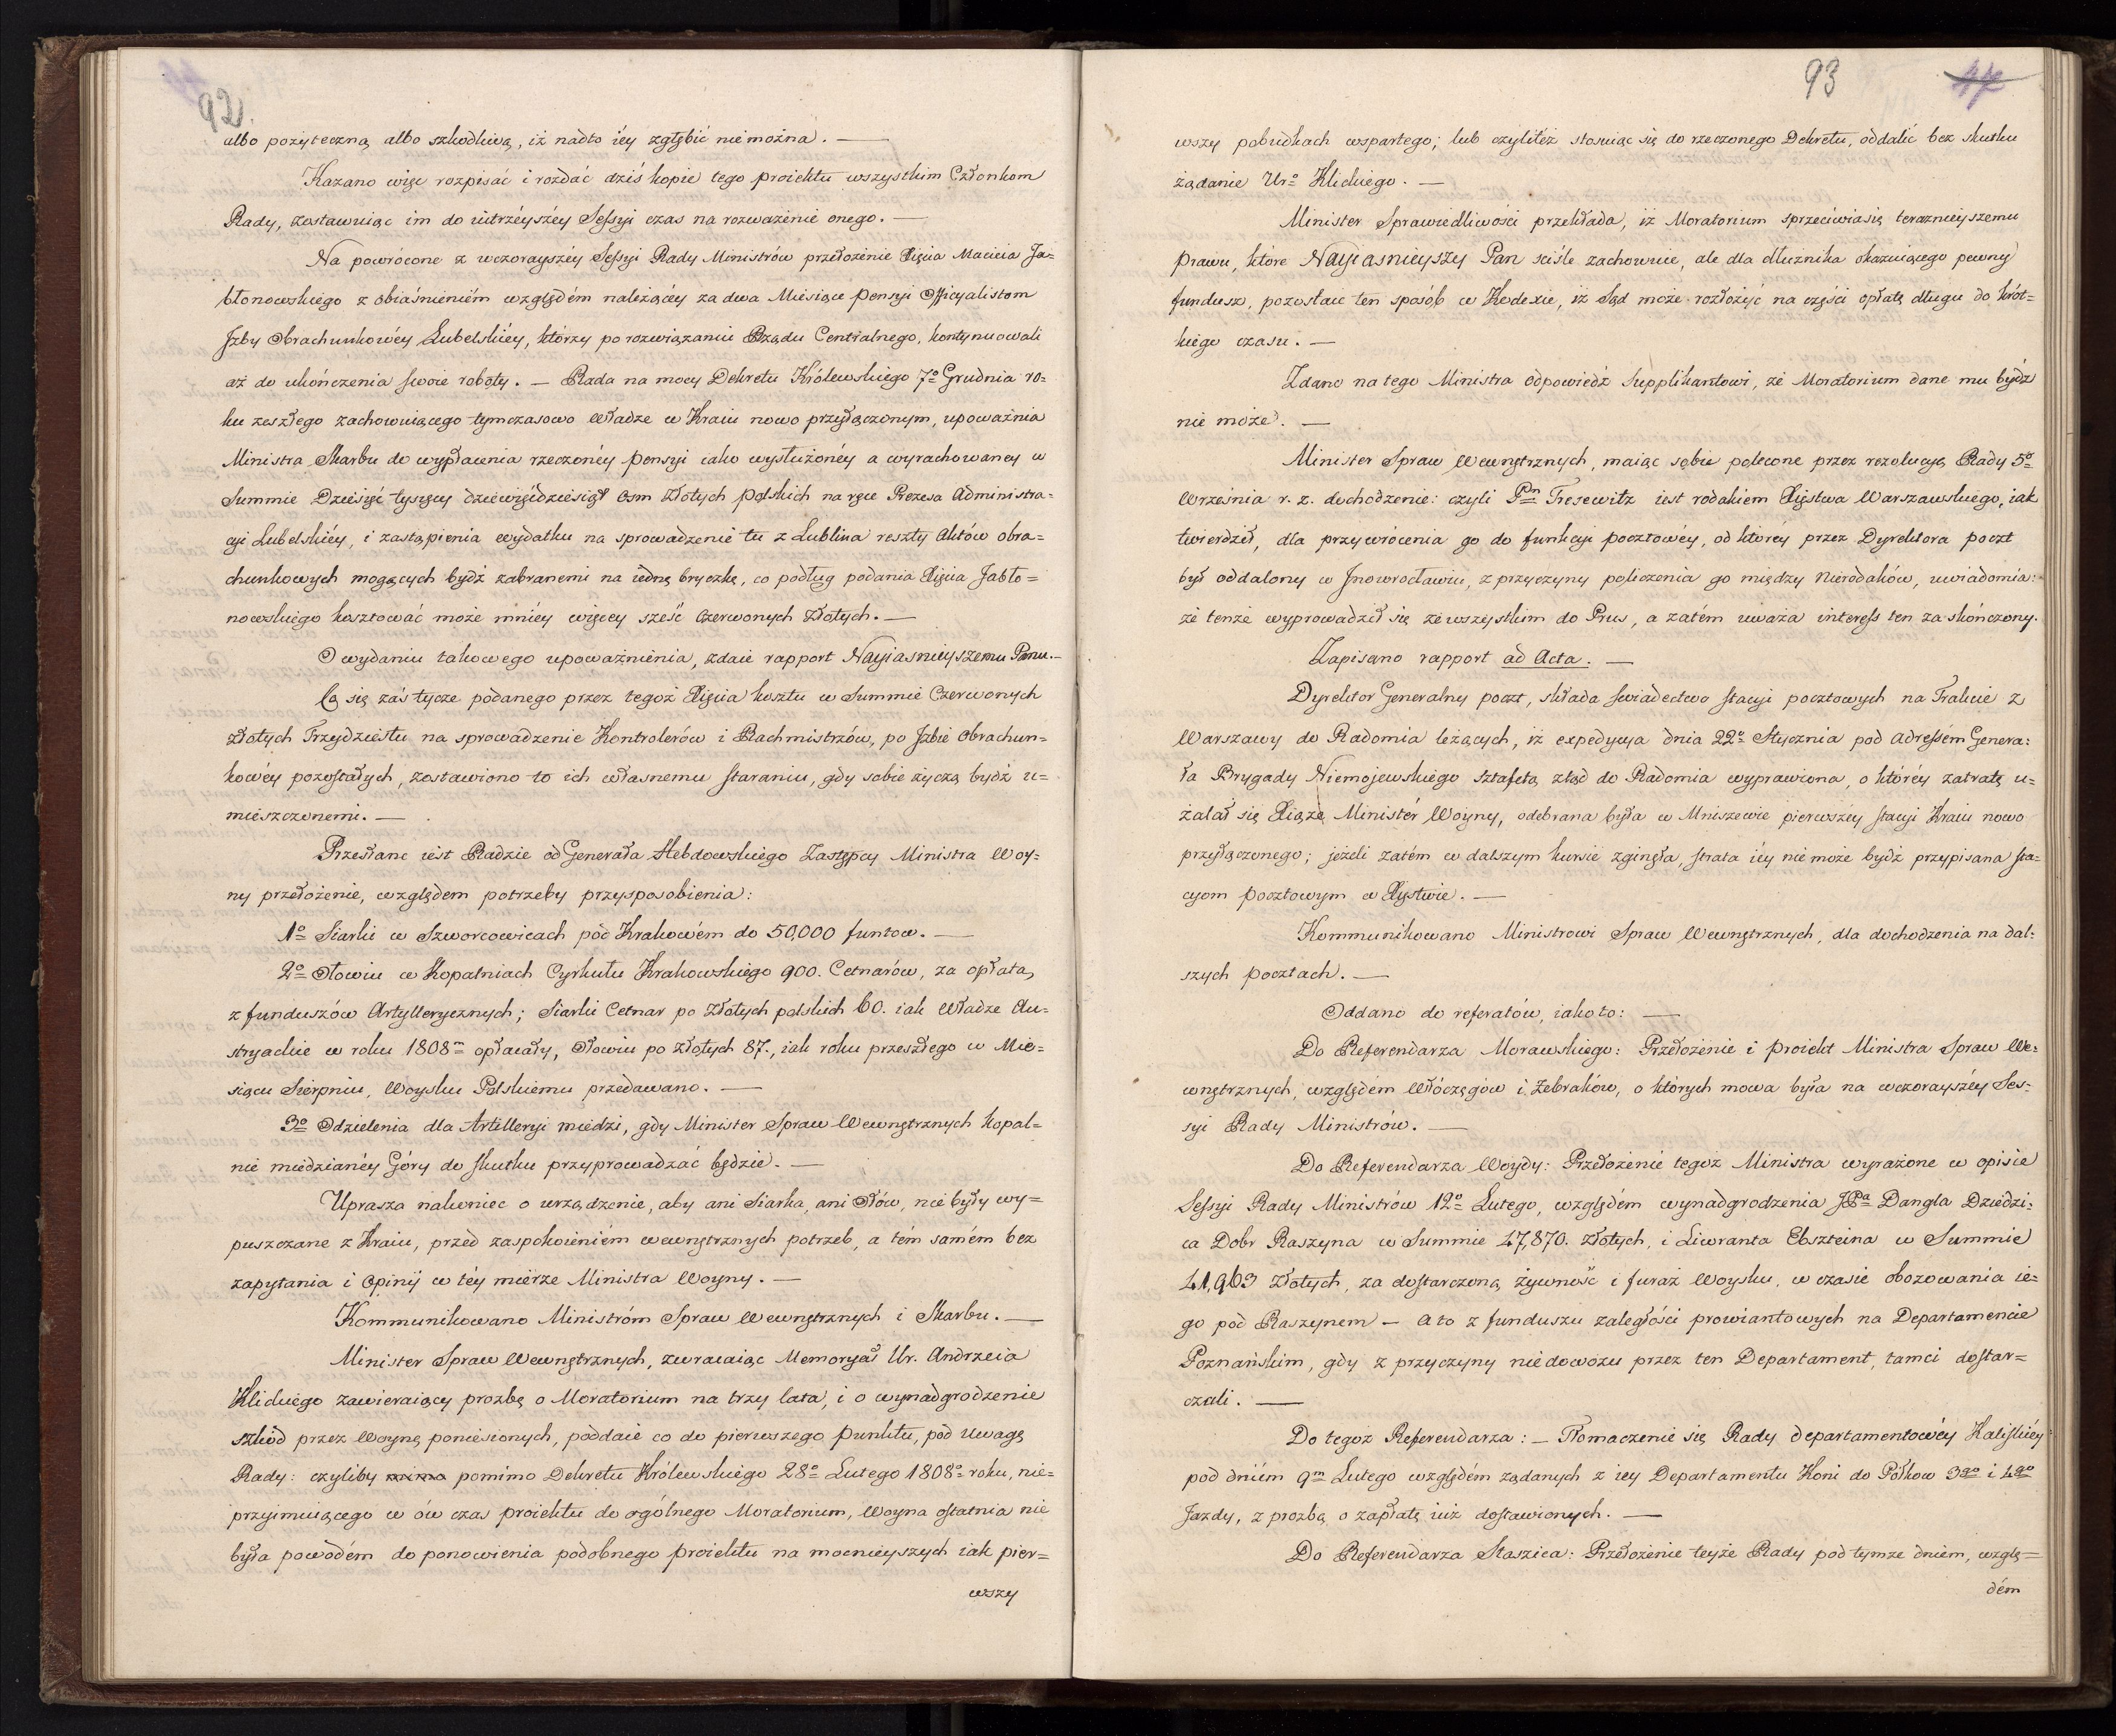 92.
albo pożyteczną albo szkodliwą, iż nadto iéy zgłębić nie można. —
Kazano więc rozpisać i rozdać dziś kopie tego proiektu wszystkim Członkom
Rady, zostawuiąc im do iutrzéyszéy Sessyi czas na rozważenie onego. —
Na powrócone z wczorayszéy Sessyi Rady Ministrów przełożenie Xięcia Macieia Ja=
błonowskiego z obiaśnieniém względém należącéy za dwa Miesiące pensyi Officyalistom
Jzby Obrachunkowéy Lubelskiéy, którzy po rozwiązaniu Rządu Centralnego, kontynuowali
aż do ukończenia swoie roboty. — Rada na mocy Dekretu Królewskiego 7º Grudnia ro=
ku zeszłego zachowuiącego tymczasowo Władze w Kraiu nowo przyłączonym, upoważnia
Ministra Skarbu do wypłacenia rzeczonéy pensyi iako wysłużonéy a wyrachowaney w
Summie Dziesięć tysięcy dziewięćdziesiąt osm Złotych polskich na ręce Prezesa Administra=
cyi Lubelskiéy, i zastąpienia wydatku na sprowadzenie tu z Lublina reszty Aktów obra=
chunkowych mogących bydź zabranemi na iedną bryczkę, co podług podania Xięcia Jabło=
nowskiego kosztować może mniéy więcey sześć Czerwonych Złotych. —
O wydaniu takowego upoważnienia, zdaie rapport Nayiaśnieyszemu Panu. —
Co się zaś tycze podanego przez tegoż Xięcia kosztu w Summie Czerwonych
Złotych Trzydziestu na sprowadzenie Kontrolerów i Rachmistrzów, po Jzbie Obrachun=
kowéy pozostałych, zostawiono to ich własnemu staraniu, gdy sobie życzą bydź u=
mieszczonemi. —
Przesłane iest Radzie od Generała Hebdowskiego Zastępcy Ministra Woy=
ny przełożenie, względem potrzeby przysposobienia:
1º Siarki w Szworcowicach pod Krakowém do 50,000 funtow. —
2º Ołowiu w Kopalniach Cyrkułu Krakowskiego 900. Cetnarów, za opłatą
z funduszów Artyllerycznych; Siarki Cetnar po Złotych polskich 60. iak Władze Au=
stryackie w roku 1808m opłacały, Ołowiu po złotych 87., iak roku przeszłego w Mie=
siącu Sierpniu, Woysku Polskiemu przedawano. —
3º Odzielenia dla Artilleryi miedzi, gdy Minister Spraw Wewnętrznych kopal=
nie miedzianéy Góry do skutku przyprowadzać będzie. —
Uprasza nakoniec o urządzenie, aby ani Siarka, ani Ołów, nie były wy=
puszczane z Kraiu, przed zaspokoieniém wewnętrznych potrzeb, a tém samém bez
zapytania i Opinij w téy mierze Ministra Woyny. —
Kommunikowano Ministróm Spraw Wewnętrznych i Skarbu. —
Minister Spraw Wewnętrznych, zwracaiąc Memoryał Ur. Andrzeia
Klickiego zawieraiący prozbę o Moratorium na trzy lata, i o wynadgrodzenie
szkód przez Woynę poniesionych, poddaie co do pierwszego punktu, pod Uwagę
Rady: czyliby mimo pomimo Dekretu Królewskiego 28º Lutego 1808º roku, nie=
przyimuiącego w ów czas proiektu do ogólnego Moratorium, Woyna ostatnia nie
była powodém do ponowienia podobnego proiektu na mocnieyszych iak pier=
wszy
93 47
wszy pobudkach wspartego; lub czyliteż stosuiąc się do rzeczonego Dekretu, oddalić bez skutku
żądanie Urº Klickiego. —
Minister Sprawiedliwości przekłada, iż Moratorium sprzeciwia się teraznieyszemu
Prawu, które Nayiasnieyszy Pan scisle zachowuie, ale dla dłużnika okazuiącego pewny
fundusz, pozostaie ten sposób w Kodexie, iż Sąd może rozłożyć na części opłatę długu do krót=
kiego czasu. —
Zdano na tego Ministra odpowiedź Supplikantowi, że Moratorium dane mu bydź
nie może. —
Minister Spraw Wewnętrznych, maiąc sobie polecone przez rezolucyą Rady 5º
Września r. z. dochodzenie: czyli Pn Tresewitz iest rodakiem Xięstwa Warszawskiego, iak
twierdził, dla przywrócenia go do funkcyi pocztowéy, od któréy przez Dyrektora poczt
był oddalony w Jnowrocławiu, z przyczyny policzenia go między Nierodaków, uwiadomia:
że tenże wyprowadził się ze wszystkim do Prus, a zatém uważa interess ten za skończony.
Zapisano rapport ad Acta. —
Dyrektor Generalny poczt, składa swiadectwo stacyi pocztowych na Trakcie z
Warszawy do Radomia leżących, iż expedycya dnia 22º Stycznia pod Adressém Genera=
ła Brygady Niemojewskiego sztafetą ztąd do Radomia wyprawiona, o któréy zatratę u=
żalał się Xiąże Minister Woyny, odebrana była w Mniszewie pierwszéy stacyi Kraiu nowo
przyłączonego; jeżeli zatém w dalszym kursie zginęła, strata iéy nie może bydź przypisana sta=
cyom pocztowym w Xięstwie. —
Kommunikowano Ministrowi Spraw Wewnętrznych, dla dochodzenia na dal=
szych pocztach. —
Oddano do referatów, iako to: —
Do Referendarza Morawskiego: Przełożenie i proiekt Ministra Spraw We=
wnętrznych, względém Włóczęgów i Żebraków, o których mowa była na wczorayszéy Ses=
syi Rady Ministrów. —
Do Referendarza Woydy: Przełożenie tegoż Ministra wyrażone w opisie
Sessyi Rady Ministrów 12º Lutego, względém wynadgrodzenia JPa Dangla Dziedzi=
ca Dobr Raszyna w Summie 47,870. złotych, i Liweranta Ebszteina w Summie
41,963 złotych, za dostarczoną żywność i furaż Woysku, w czasie obozowania ie=
go pod Raszynem — A to z funduszu zaległości prowiantowych na Departamencie
Poznańskim, gdy z przyczyny niedowozu przez ten Departament, tamci dostar=
czali. —
Do tegoż Referendarza: — Tłomaczenie się Rady departamentowéy Kaliskiéy
pod dniém 9m Lutego względém żądanych z iey Departamentu Koni do Półkow 3go i 4go
Jazdy, z prozbą o zapłatę iuż dostawionych. —
Do Referendarza Staszica: Przełożenie teyże Rady pod tymże dniem, wzglę=
dém